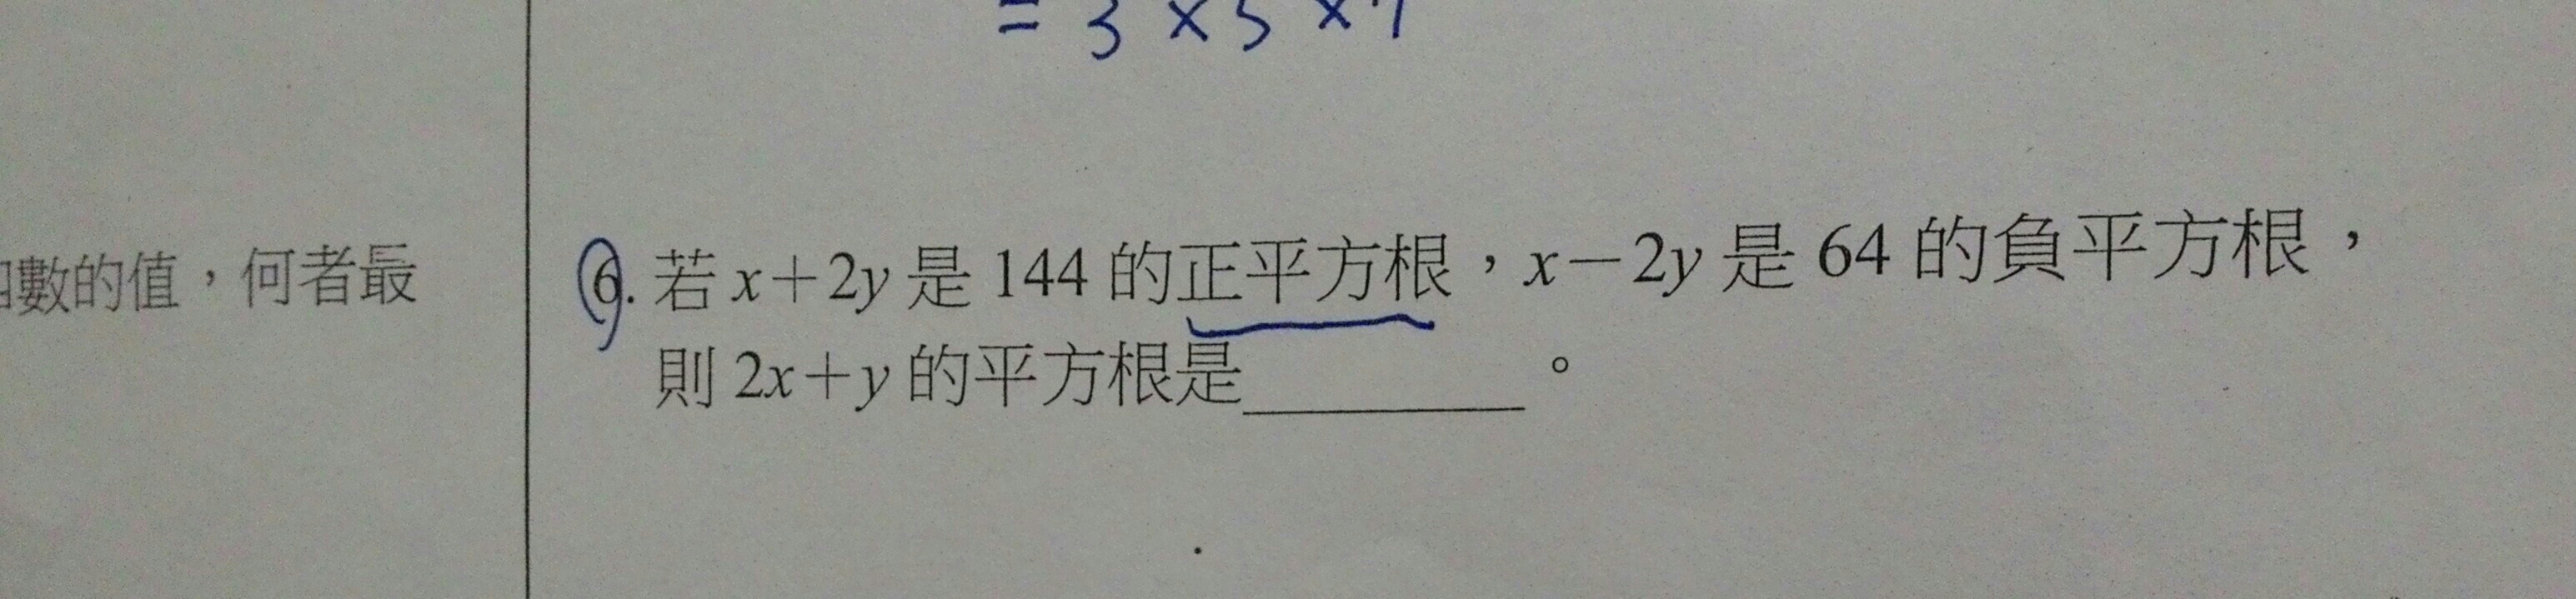 = 3 × 5 × 7
數的值，何者最
6. 若 x＋2y 是 144 的正平方根，x－2y 是 64 的負平方根，
則 2x＋y 的平方根是________。